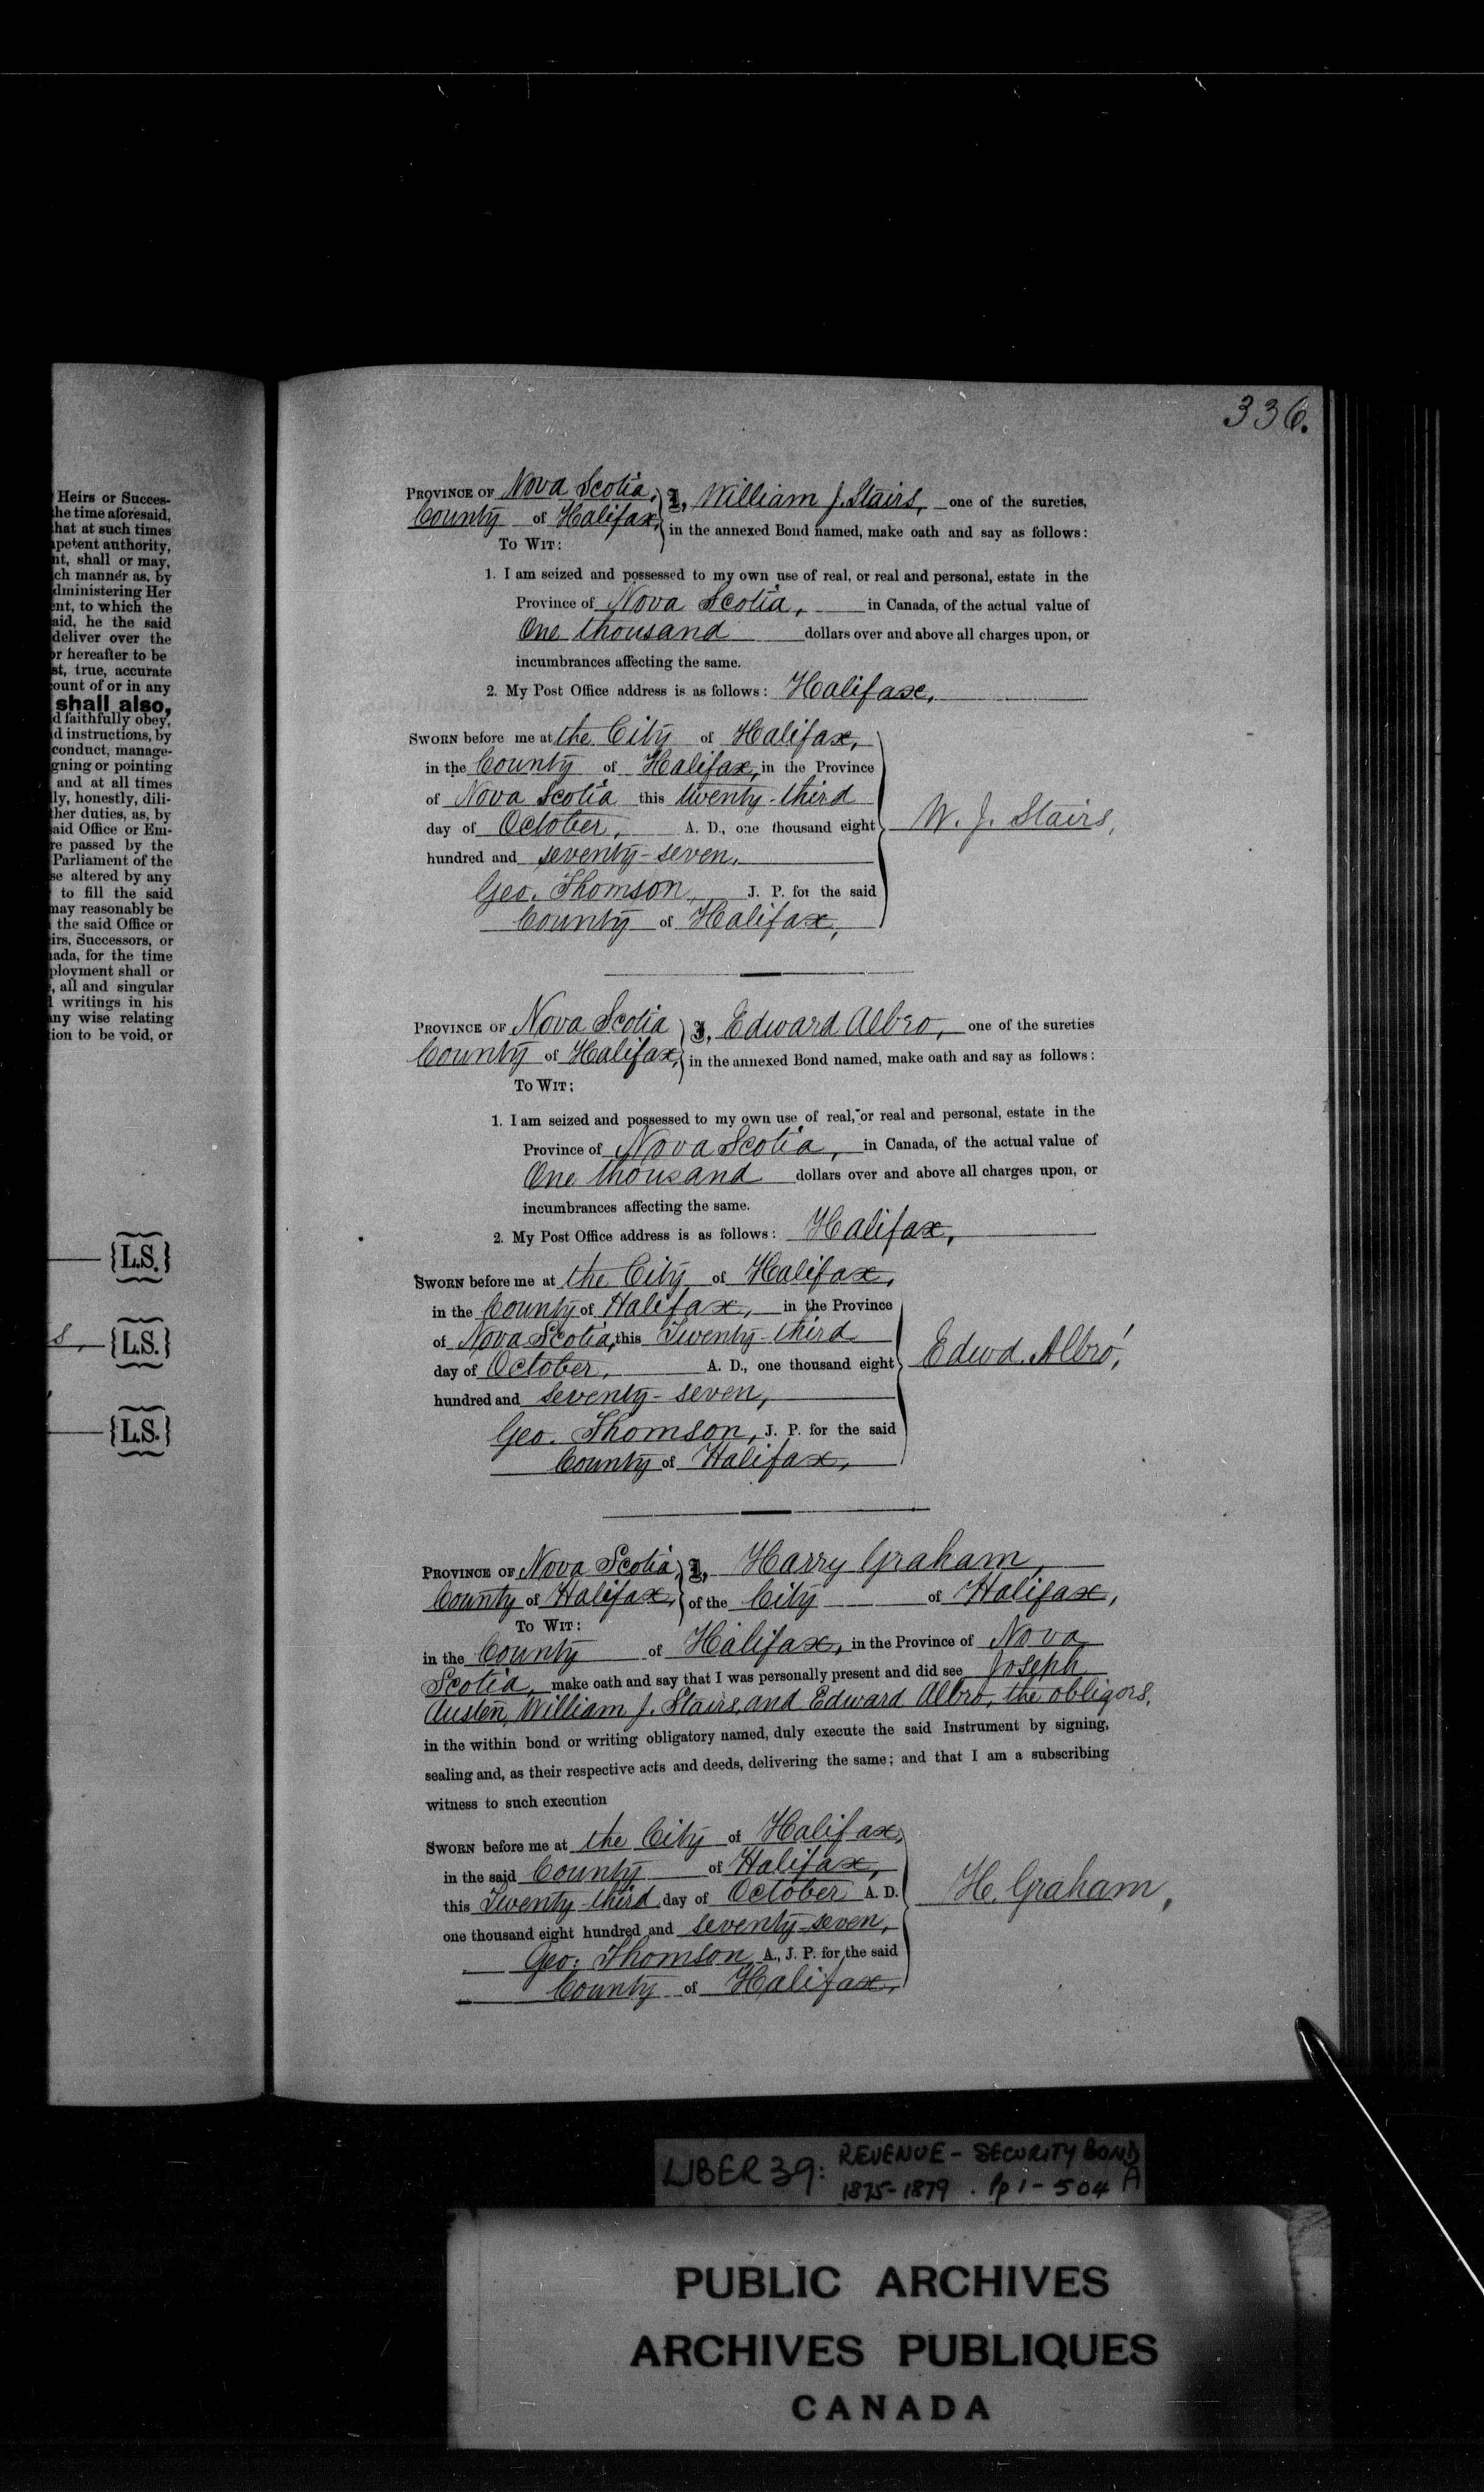 336.
Heirs or Succes-
the time aforesaid,
that at such times
petent authority,
nt, shall or may,
ch manner as, by
dministering Her
ent, to which the
aid, he the said
deliver over the
or hereafter to be
st, true, accurate
ount of or in any
shall also,
d faithfully obey,
d instructions, by
conduct, manage-
gning or pointing
and at all times
ly, honestly, dili-
her duties, as, by
aid Office or Em-
re passed by the
Parliament of the
se altered by any
to fill the said
may reasonably be
the said Office or
irs, Successors, or
nada, for the time
ployment shall or
, all and singular
writings in his
any wise relating
tion to be void, or
{L.S.}
s, {L.S.}
{L.S.}
PROVINCE OF Nova Scotia, I, William J. Stairs, one of the sureties,
County of Halifax, in the annexed Bond named, make oath and say as follows:
TO WIT:
1. I am seized and possessed to my own use of real, or real and personal, estate in the
Province of Nova Scotia, in Canada, of the actual value of
One thousand dollars over and above all charges upon, or
incumbrances affecting the same.
2. My Post Office address is as follows: Halifax,
SWORN before me at the City of Halifax,
in the County of Halifax, in the Province
of Nova Scotia this twenty-third
day of October, A. D., one thousand eight
hundred and seventy-seven,
W. J. Stairs,
Geo. Thomson, J. P. for the said
County of Halifax,
PROVINCE OF Nova Scotia I, Edward Albro, one of the sureties
County of Halifax, in the annexed Bond named, make oath and say as follows:
TO WIT:
1. I am seized and possessed to my own use of real, or real and personal, estate in the
Province of Nova Scotia, in Canada, of the actual value of
One thousand dollars over and above all charges upon, or
incumbrances affecting the same.
2. My Post Office address is as follows: Halifax,
SWORN before me at the City of Halifax,
in the County of Halifax, in the Province
of Nova Scotia, this Twenty-third
day of October, A. D., one thousand eight
hundred and seventy-seven,
Edwd. Albro,
Geo. Thomson, J. P. for the said
County of Halifax,
PROVINCE OF Nova Scotia, I, Harry Graham,
County of Halifax, of the City of Halifax,
TO WIT:
in the County of Halifax, in the Province of Nova
Scotia, make oath and say that I was personally present and did see Joseph
Austen, William J. Stairs, and Edward Albro, the obligors,
in the within bond or writing obligatory named, duly execute the said Instrument by signing,
sealing and, as their respective acts and deeds, delivering the same; and that I am a subscribing
witness to such execution
SWORN before me at the City of Halifax,
in the said County of Halifax,
this Twenty-third day of October A. D.
one thousand eight hundred and seventy-seven,
H. Graham,
Geo. Thomson, A., J. P. for the said
County of Halifax,
LIBER 39: REVENUE - SECURITY BOND
1875-1879. Pp 1 - 504 A
PUBLIC ARCHIVES
ARCHIVES PUBLIQUES
CANADA